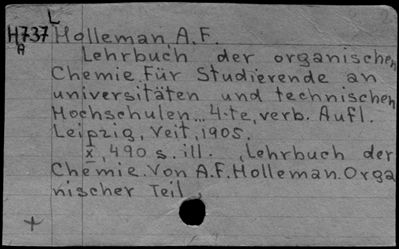 L
H737 Holleman, A.F.
A
Lehrbuch der organischen
Chemie. Für Studierende an
universitäten und technischen
Hochschulen... 4:te, verb. Aufl.
Leipzig, Veit, 1905.
x, 490 s. ill. (Lehrbuch der
Chemie. Von A.F. Holleman. Orga
nischer Teil